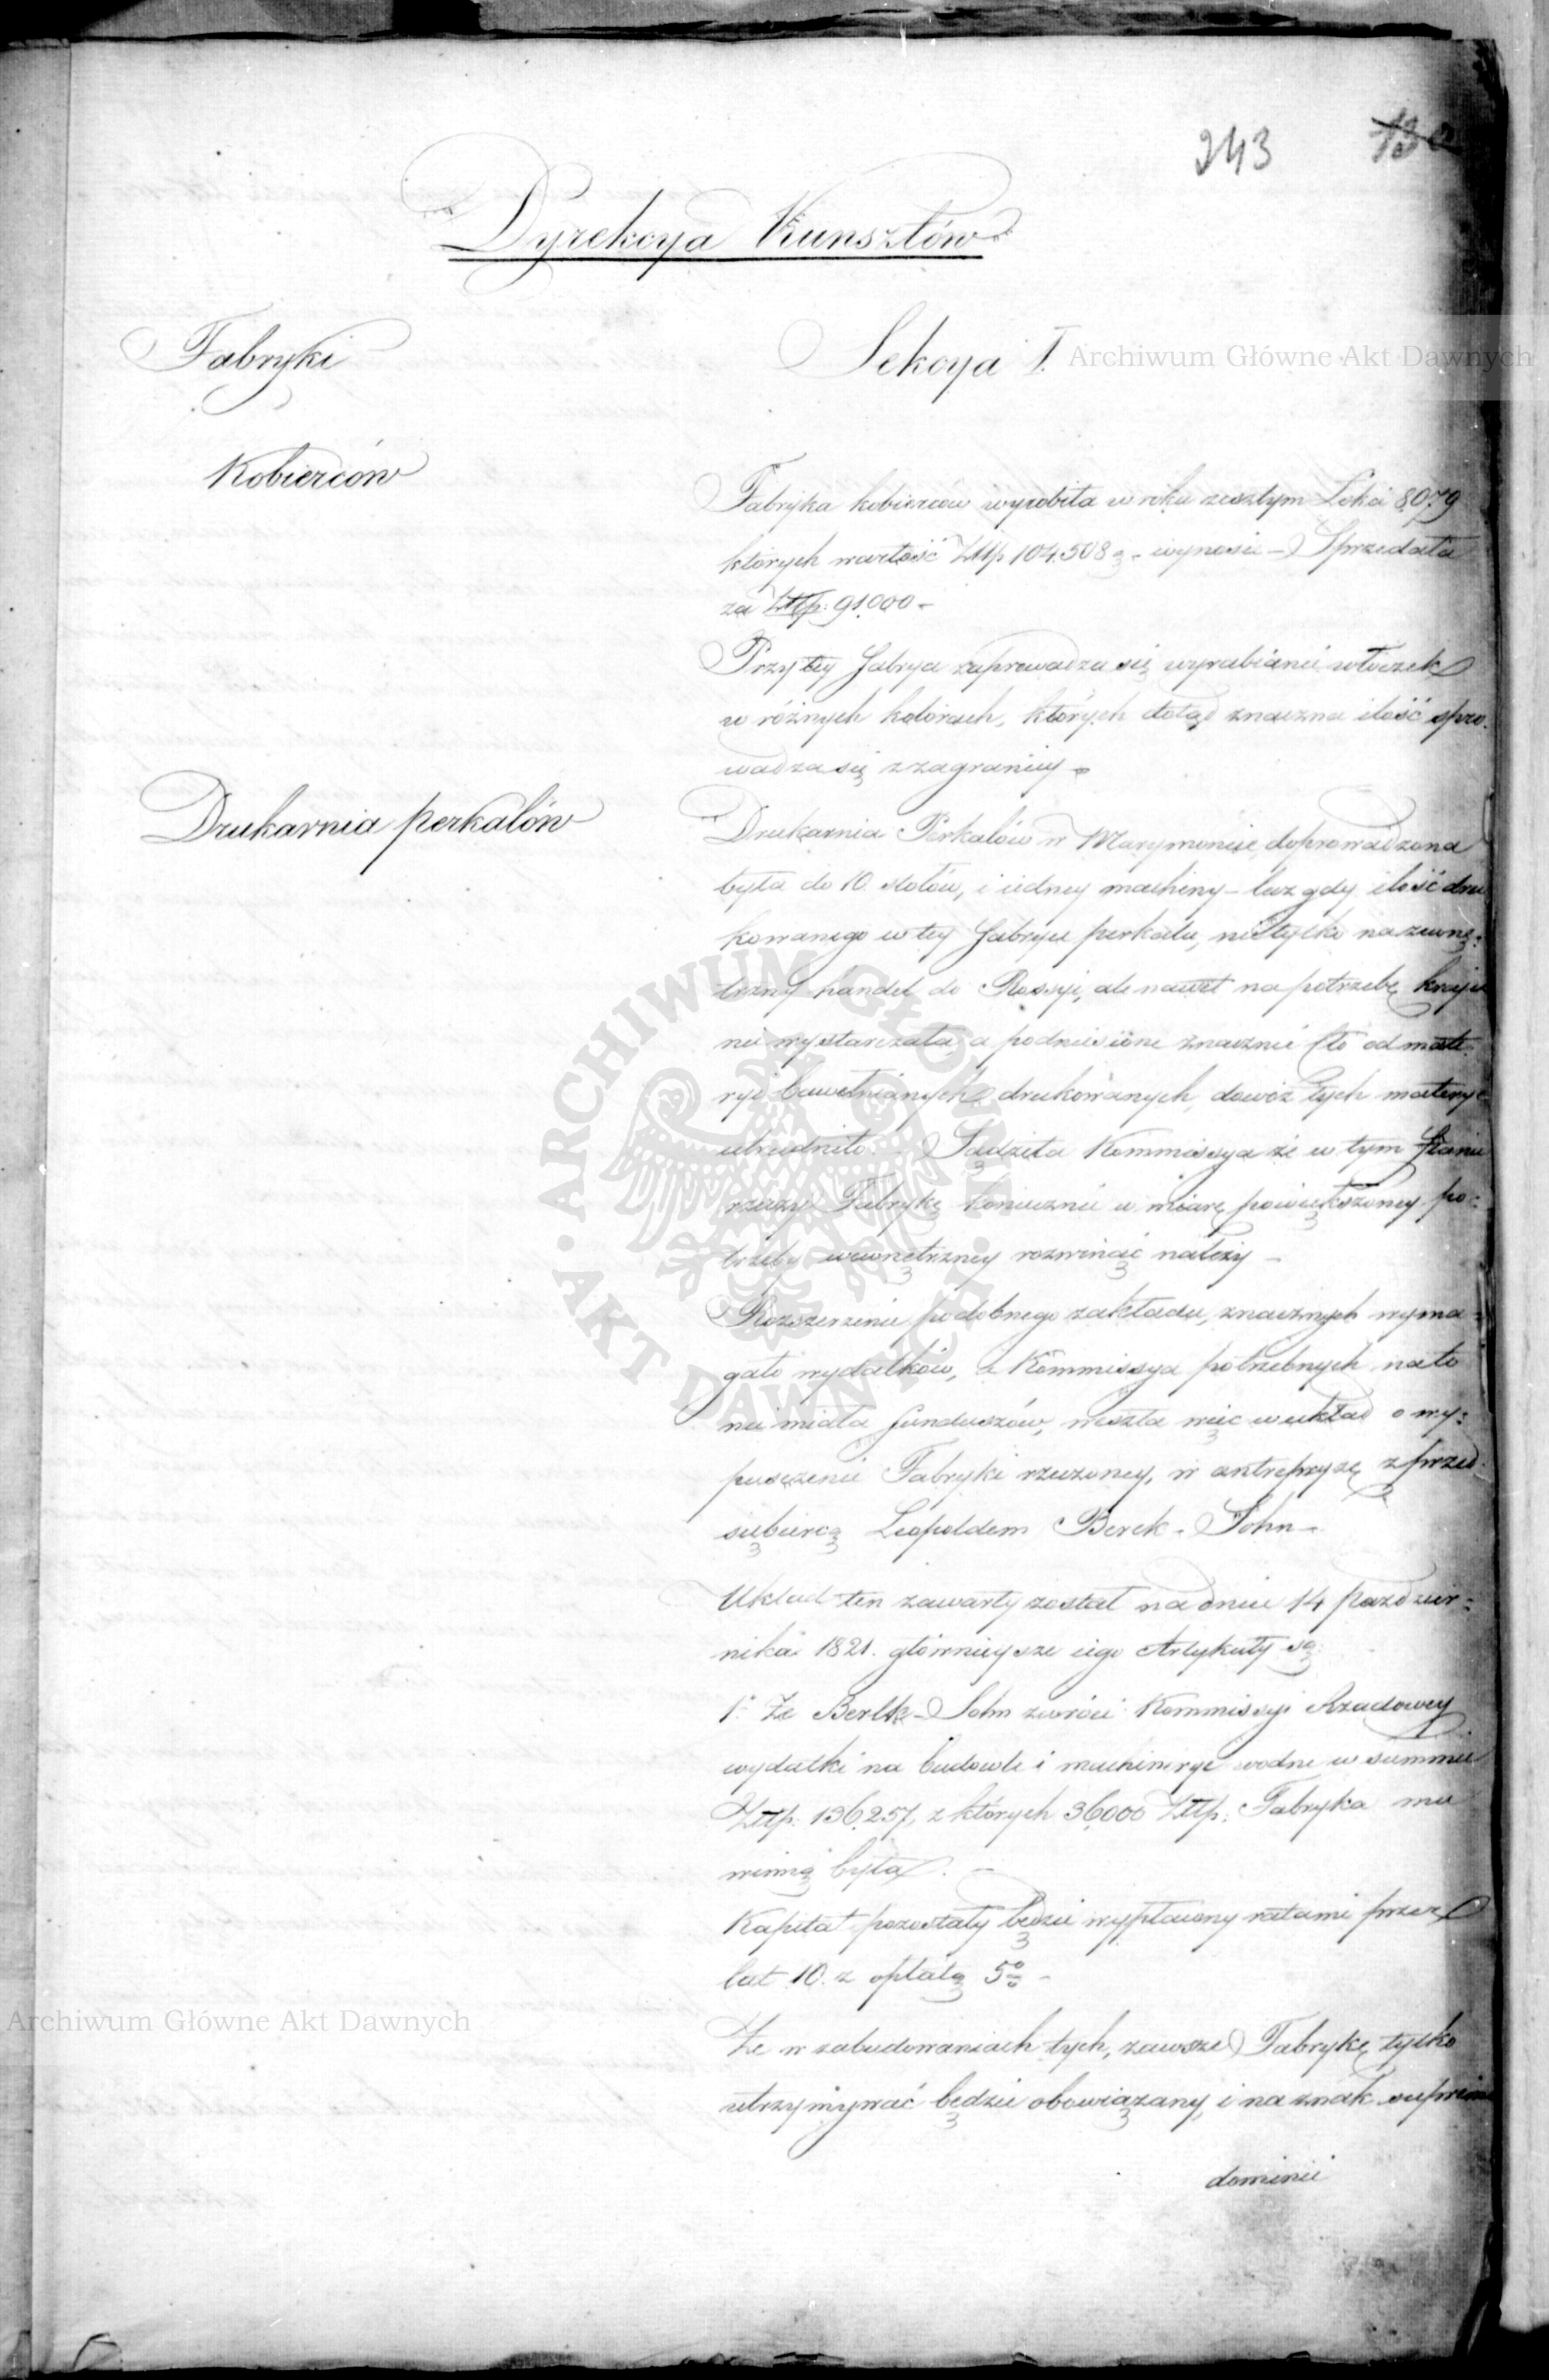 243
Dyrekcya Kunsztów
Fabryki
Sekcya I.
Archiwum Główne Akt Dawnych
Kobierców
Fabryka kobierców wyrobiła w roku zeszłym Łokci 8,079
których wartość Złłp 104,508 wynosi – Sprzedała
za Złłp: 91,000 –
Przy tey Fabryce zaprowadza się wyrabianie włóczek
w różnych kolorach, których dotąd znaczna ilość spro-
wadza się z zagranicy –
Drukarnia perkalów
Drukarnia Perkalów w Marymoncie doprowadzona
była do 10. stołów, i iedney machiny – lecz gdy ilość dru
kowanego w tey Fabryce perkalu, nie tylko na zewnę:
trzny handel do Rossyi, ale nawet na potrzebę kraju
nie wystarczała, a podniesione znacznie cło od mate
ryi bawełnianych drukowanych, dowóz tych materyi
utrudniło. – Sądziła Kommissya że w tym stanie
rzeczy Fabrykę koniecznie w miarę powiększoney po:
trzeby wewnętrzney rozwinąć należy –
Rozszerzenie podobnego zakładu, znacznych wyma:
gało wydatków, a Kommissya potrzebnych na to
nie miała funduszów, weszła więc w układ o wy:
puszczenie Fabryki rzeczoney, w antrepryzę z przed
siębiercą Leopoldem Berck-Sohn –
Układ ten zawarty został na dniu 14 paździer:
nika 1821. główniejsze iego Artykuły są
1° Że Berck-Sohn zwróci Kommissyi Rządowey
wydatki na budowle i machinerye wodne w summie
Złłp: 136,257, z których 36,000 Złłp: Fabryka mu
winną była. –
Kapitał pozostały będzie wypłacony ratami przez
lat 10. z opłatą 5% –
Że w zabudowaniach tych, zawsze Fabrykę tylko
utrzymywać będzie obowiązany, i na znak
dominii
Archiwum Główne Akt Dawnych
ARCHIWUM GŁÓWNE
· AKT DAWNYCH ·